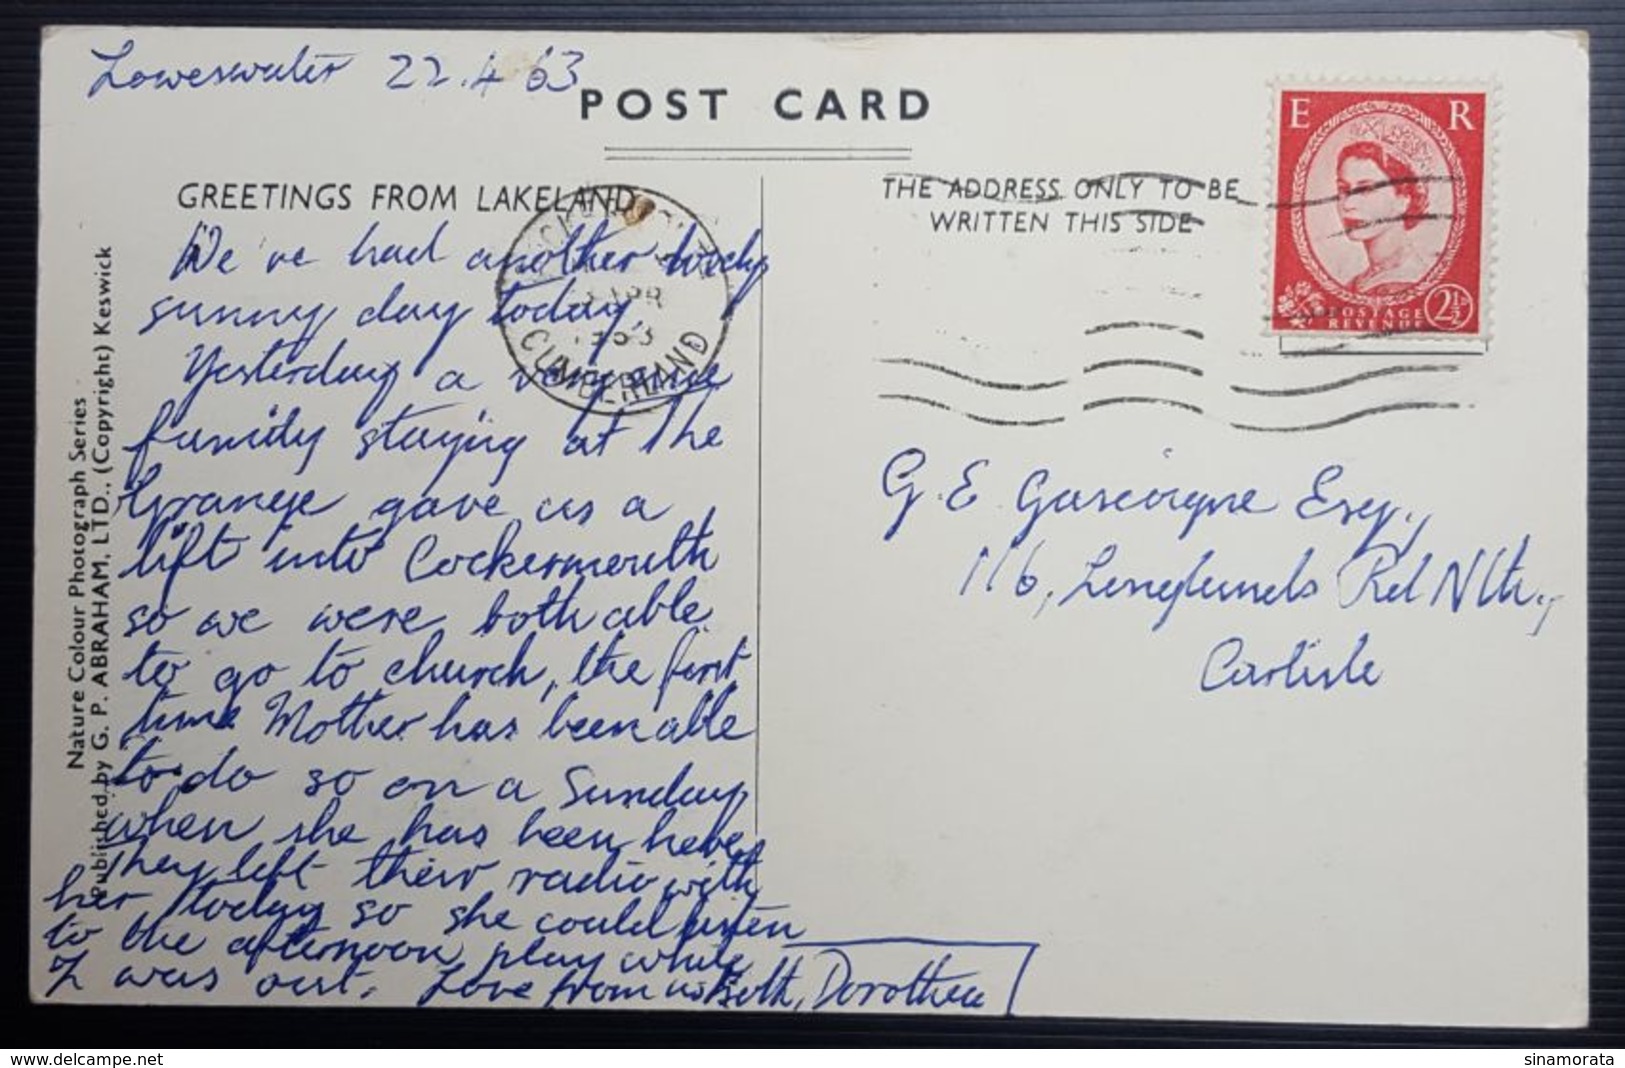 Loweswater 22.4.63
POST CARD
GREETINGS FROM LAKELAND
THE ADDRESS ONLY TO BE
WRITTEN THIS SIDE
E R
POSTAGE
REVENUE
2½D
APR
1963
CUMBERLAND
We've had another lovely
sunny day today.
Yesterday a very nice
family staying at the
Grange gave us a
lift into Cockermouth
so we were both able
to go to church, the first
time Mother has been able
to do so on a Sunday
when she has been here.
They left their radio with
her today so she could listen
to the afternoon play while
I was out. Love from us both, Dorothea
G. E. Gascoigne Esq.,
116, Longlands Rd Nth.,
Carlisle
Nature Colour Photograph Series
Published by G. P. ABRAHAM, LTD., (Copyright) Keswick
delcampe.net
sinamorata